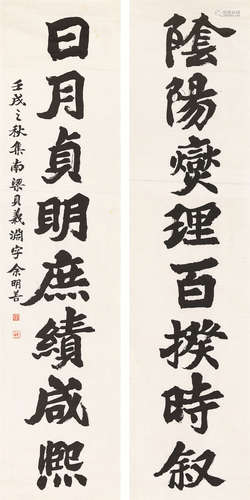 陰陽燮理百揆時叙
日月貞明庶績咸熙
壬戌之秋集南梁貝義淵字 余明善